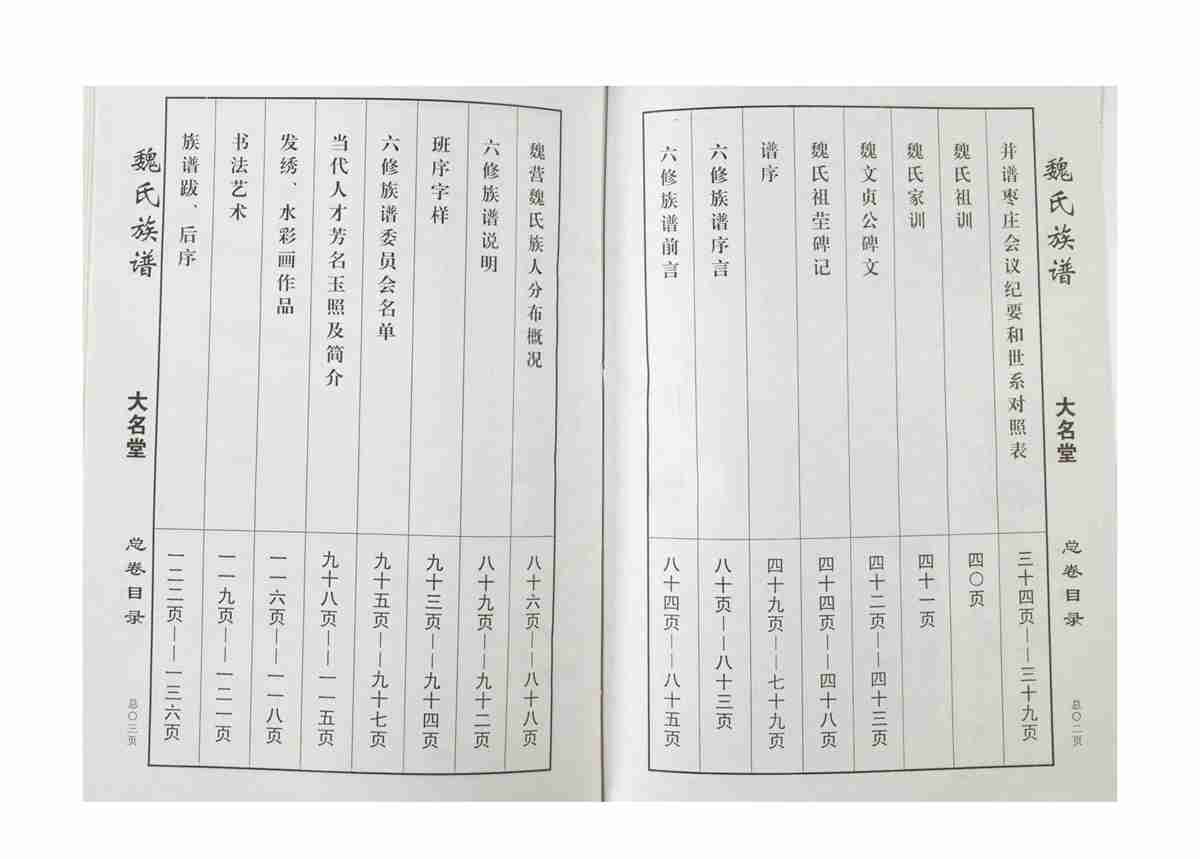 魏氏族谱
大名堂
总卷目录
总〇二页
并谱枣庄会议纪要和世系对照表
三十四页——三十九页
魏氏祖训
四〇页
魏氏家训
四十一页
魏文贞公碑文
四十二页——四十三页
魏氏祖茔碑记
四十四页——四十八页
谱序
四十九页——七十九页
六修族谱序言
八十页——八十三页
六修族谱前言
八十四页——八十五页
魏营魏氏族人分布概况
八十六页——八十八页
六修族谱说明
八十九页——九十二页
班序字样
九十三页——九十四页
六修族谱委员会名单
九十五页——九十七页
当代人才芳名玉照及简介
九十八页——一一五页
发绣、水彩画作品
一一六页——一一八页
书法艺术
一一九页——一二一页
族谱跋、后序
一二二页——一三六页
魏氏族谱
大名堂
总卷目录
总〇三页